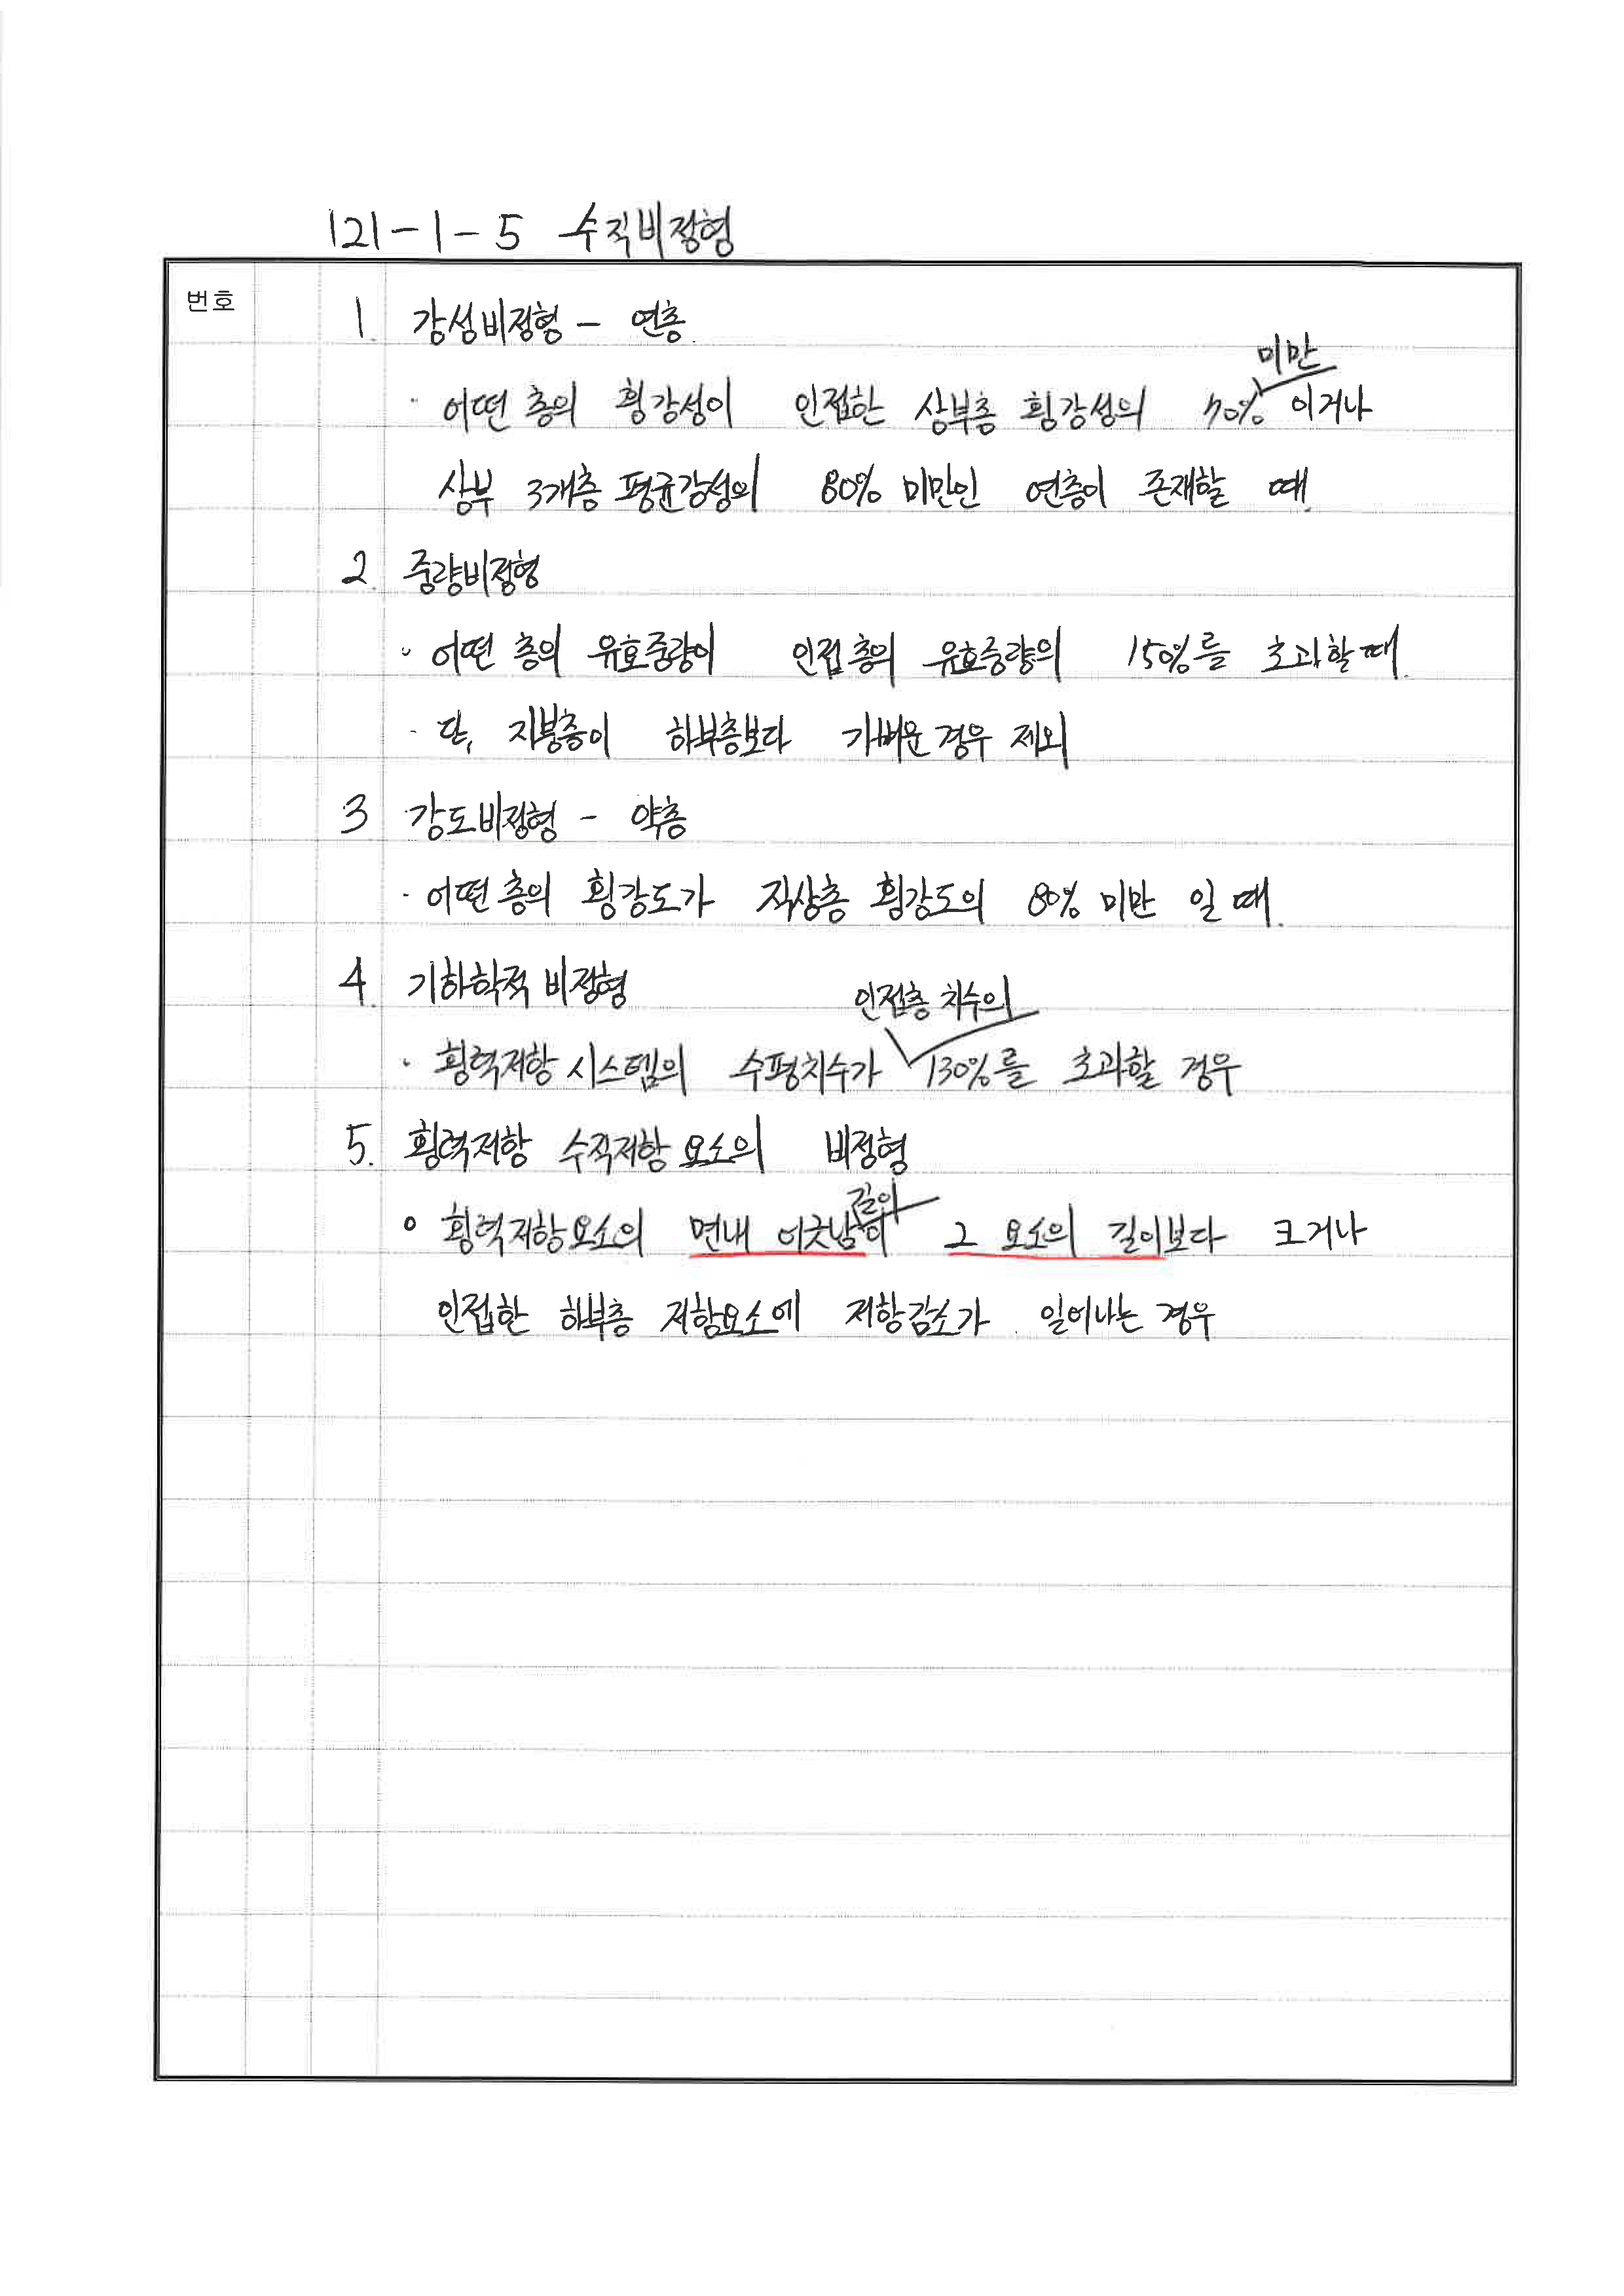 121-1-5 수직비정형
번호
1. 강성비정형 - 연층.
미만
· 어떤 층의 횡강성이 인접한 상부층 횡강성의 70% 이거나
상부 3개층 평균강성의 80% 미만인 연층이 존재할 때.
2. 중량비정형
· 어떤 층의 유효중량이 인접 층의 유효중량의 150%를 초과할 때.
· 단, 지붕층이 하부층보다 가벼운 경우 제외
3 강도비정형 - 약층
· 어떤 층의 횡강도가 직상층 횡강도의 80% 미만 일 때.
4. 기하학적 비정형
인접층 치수의
· 횡력저항 시스템의 수평치수가 130%를 초과할 경우
5. 횡력저항 수직저항 요소의 비정형
길이
○ 횡력저항요소의 면내 어긋남이 그 요소의 길이보다 크거나
인접한 하부층 저항요소에 저항감소가 일어나는 경우